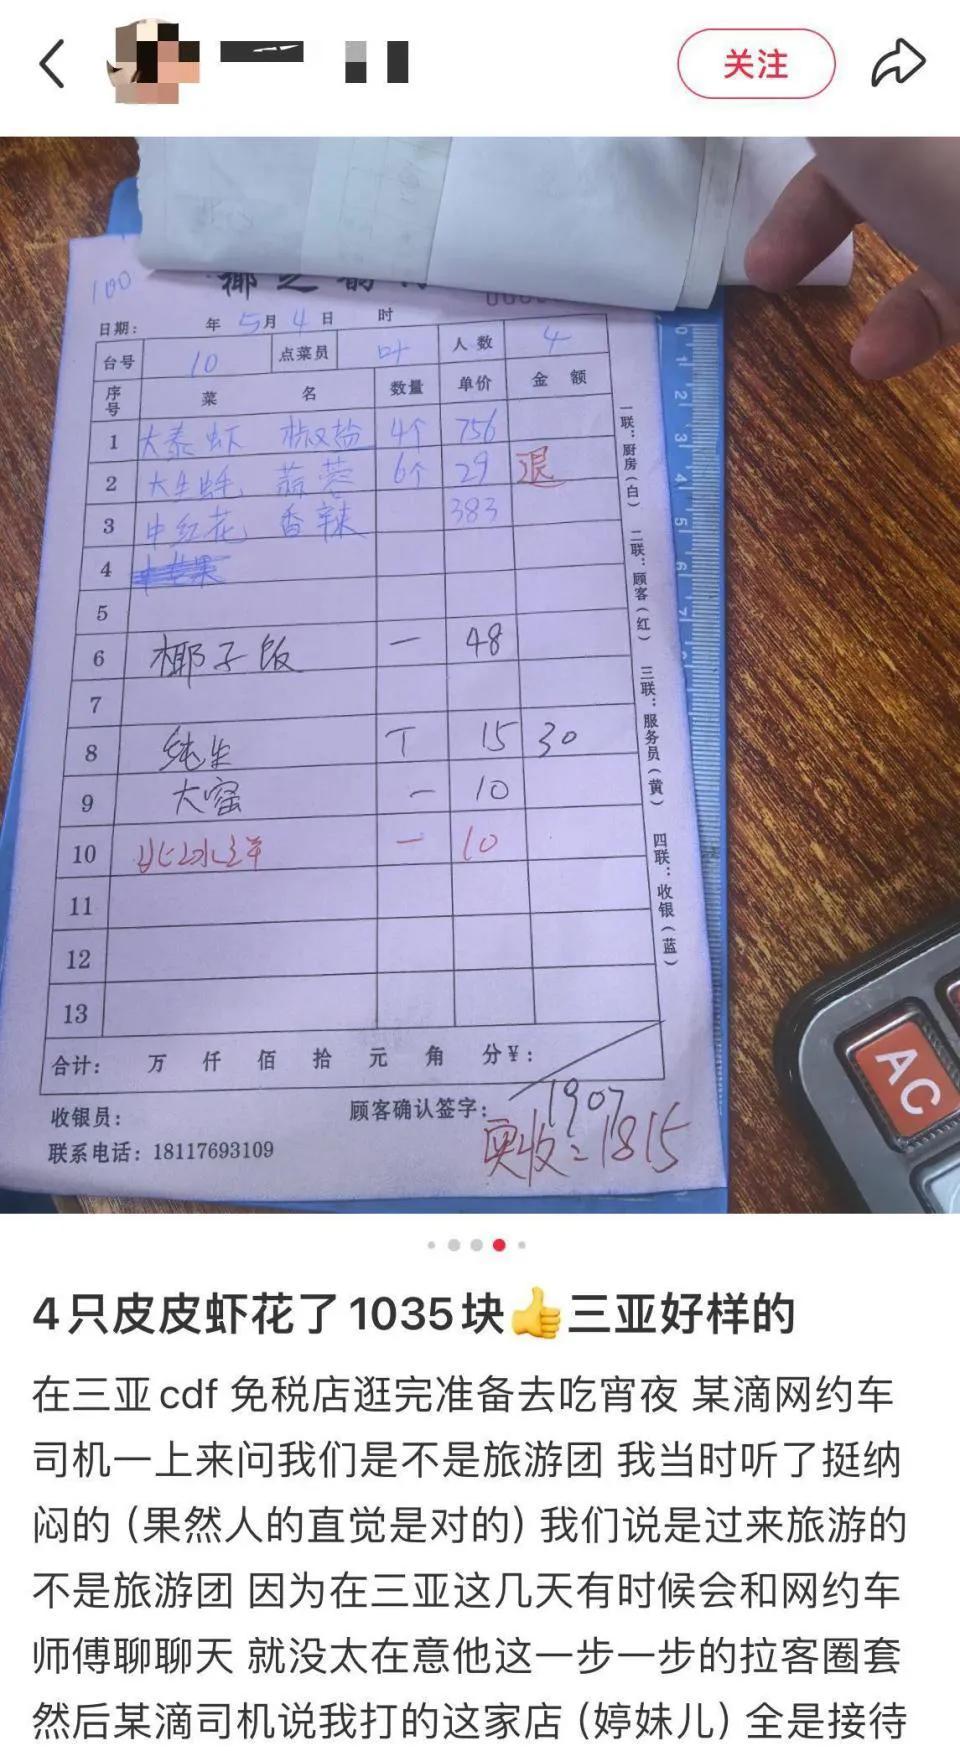 关注
100
日期: 年 5月 4日 时
台号 10 点菜员 叶 人数 4
序号 菜 名 数量 单价 金 额
1 大泰虾 椒盐 4个 756
2 大生蚝 蒜蓉 6个 29 退
3 中红花 香辣 383
4
5
6 椰子饭 一 48
7
8 纯生 T 15 30
9 大窑 一 10
10 北冰洋 一 10
11
12
13
合计: 万 仟 佰 拾 元 角 分¥:
收银员: 顾客确认签字: 1907
联系电话: 18117693109 实收=1815
一联:厨房(白) 二联:顾客(红) 三联:服务员(黄) 四联:收银(蓝)
0 1 2 3 4 5 6 7
AC
4只皮皮虾花了1035块👍三亚好样的
在三亚cdf 免税店逛完准备去吃宵夜 某滴网约车
司机一上来问我们是不是旅游团 我当时听了挺纳
闷的 (果然人的直觉是对的) 我们说是过来旅游的
不是旅游团 因为在三亚这几天有时候会和网约车
师傅聊聊天 就没太在意他这一步一步的拉客圈套
然后某滴司机说我打的这家店 (婷妹儿) 全是接待